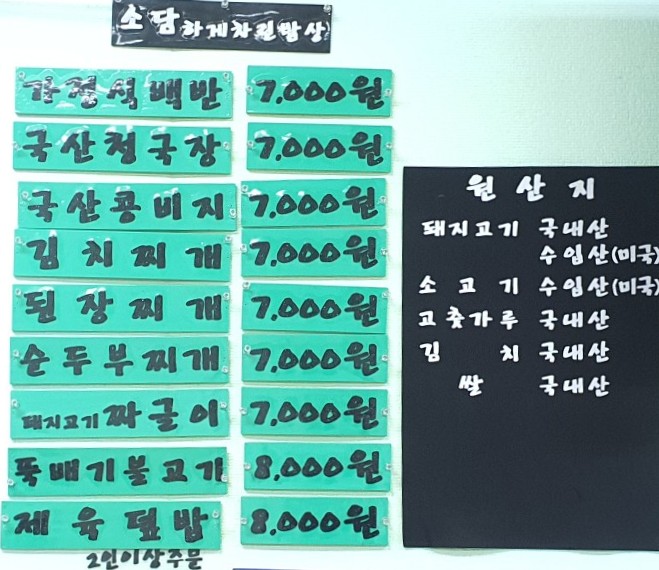 소담하게차린밥상
가정식백반 7,000원
국산청국장 7,000원
국산콩비지 7,000원
김치찌개 7,000원
된장찌개 7,000원
순두부찌개 7,000원
돼지고기짜글이 7,000원
뚝배기불고기 8,000원
제육덮밥 8,000원
2인이상주문
원산지
돼지고기 국내산
수입산(미국)
소고기 수입산(미국)
고춧가루 국내산
김치 국내산
쌀 국내산